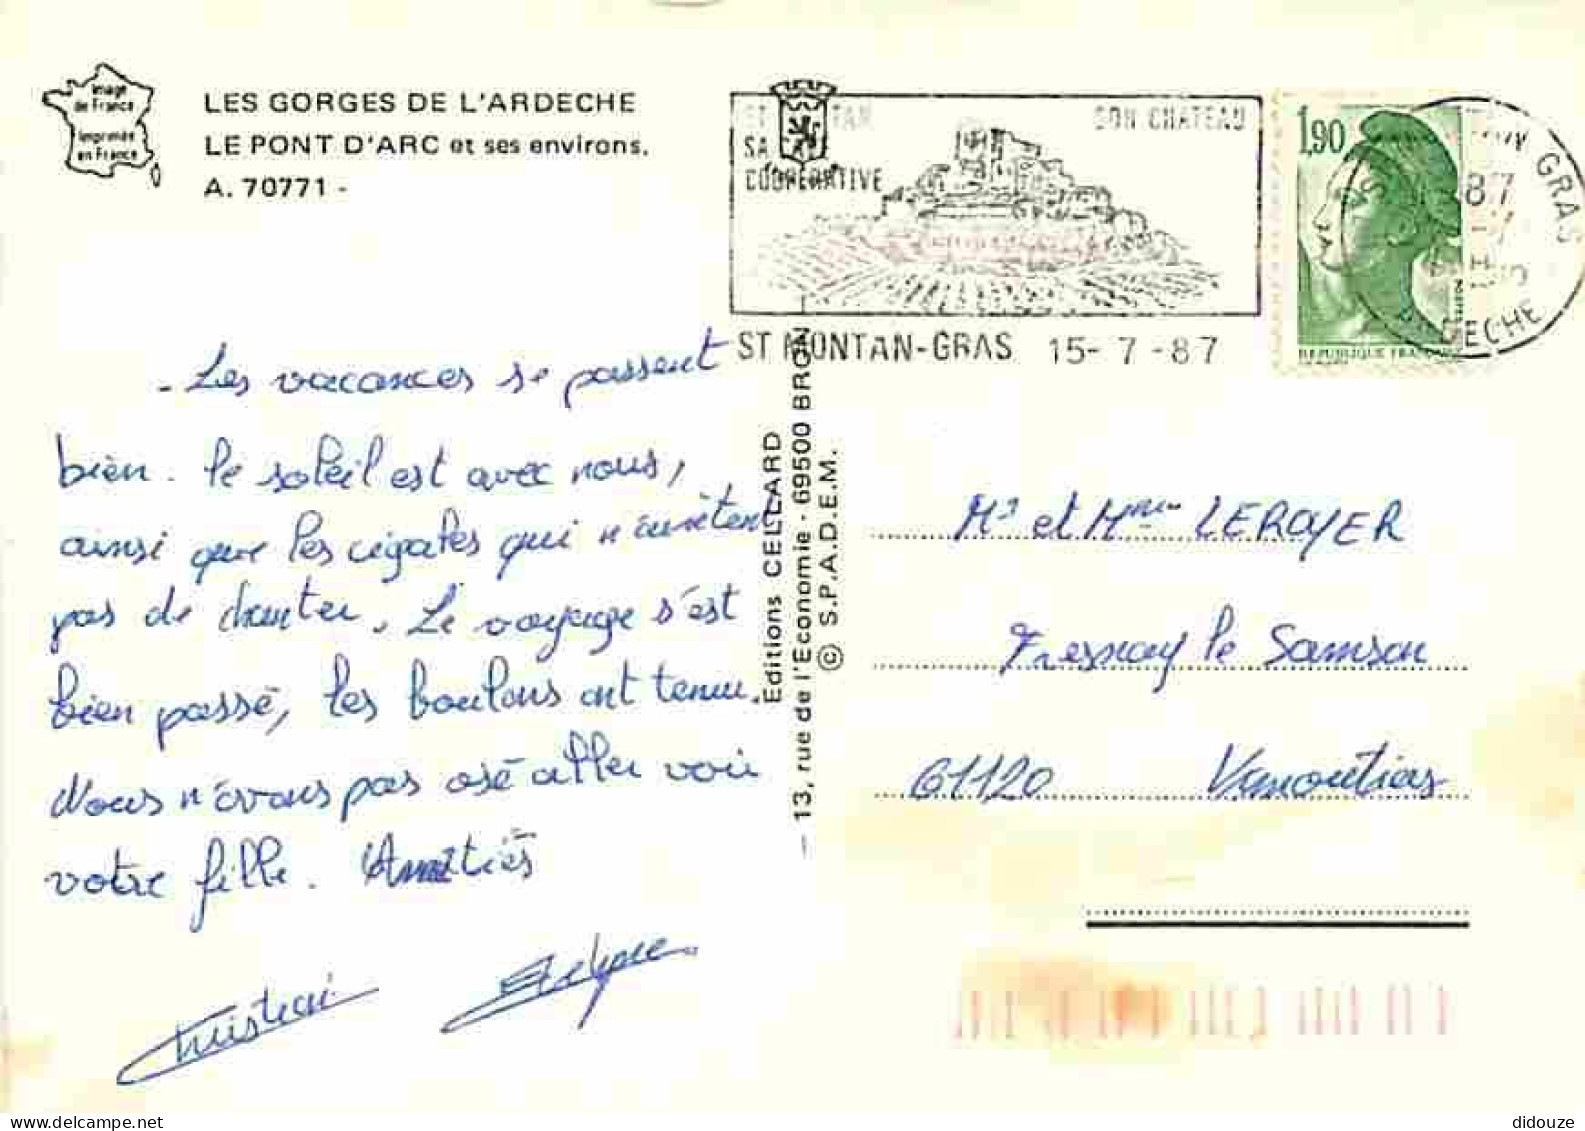 Image
de France
Imprimée
en France
LES GORGES DE L'ARDECHE
LE PONT D'ARC et ses environs.
A. 70771 -
SON CHATEAU
SA
COOPERATIVE
ST MONTAN-GRAS 15-7-87
1,90
REPUBLIQUE FRANÇAISE
87
GRAS
ARDECHE
- Les vacances se passent
bien. le soleil est avec nous,
ainsi que les cigales qui n'arrêtent
pas de chanter. Le voyage s'est
bien passé, les boulons ont tenu.
Nous n'avons pas osé aller voir
votre fille. Amitiés
Editions CELLARD
13, rue de l'Economie - 69500 BRON
© S.P.A.D.E.M.
Mr et Mme LEROYER
Fresnay le Samson
61120 Vimoutiers
didouze